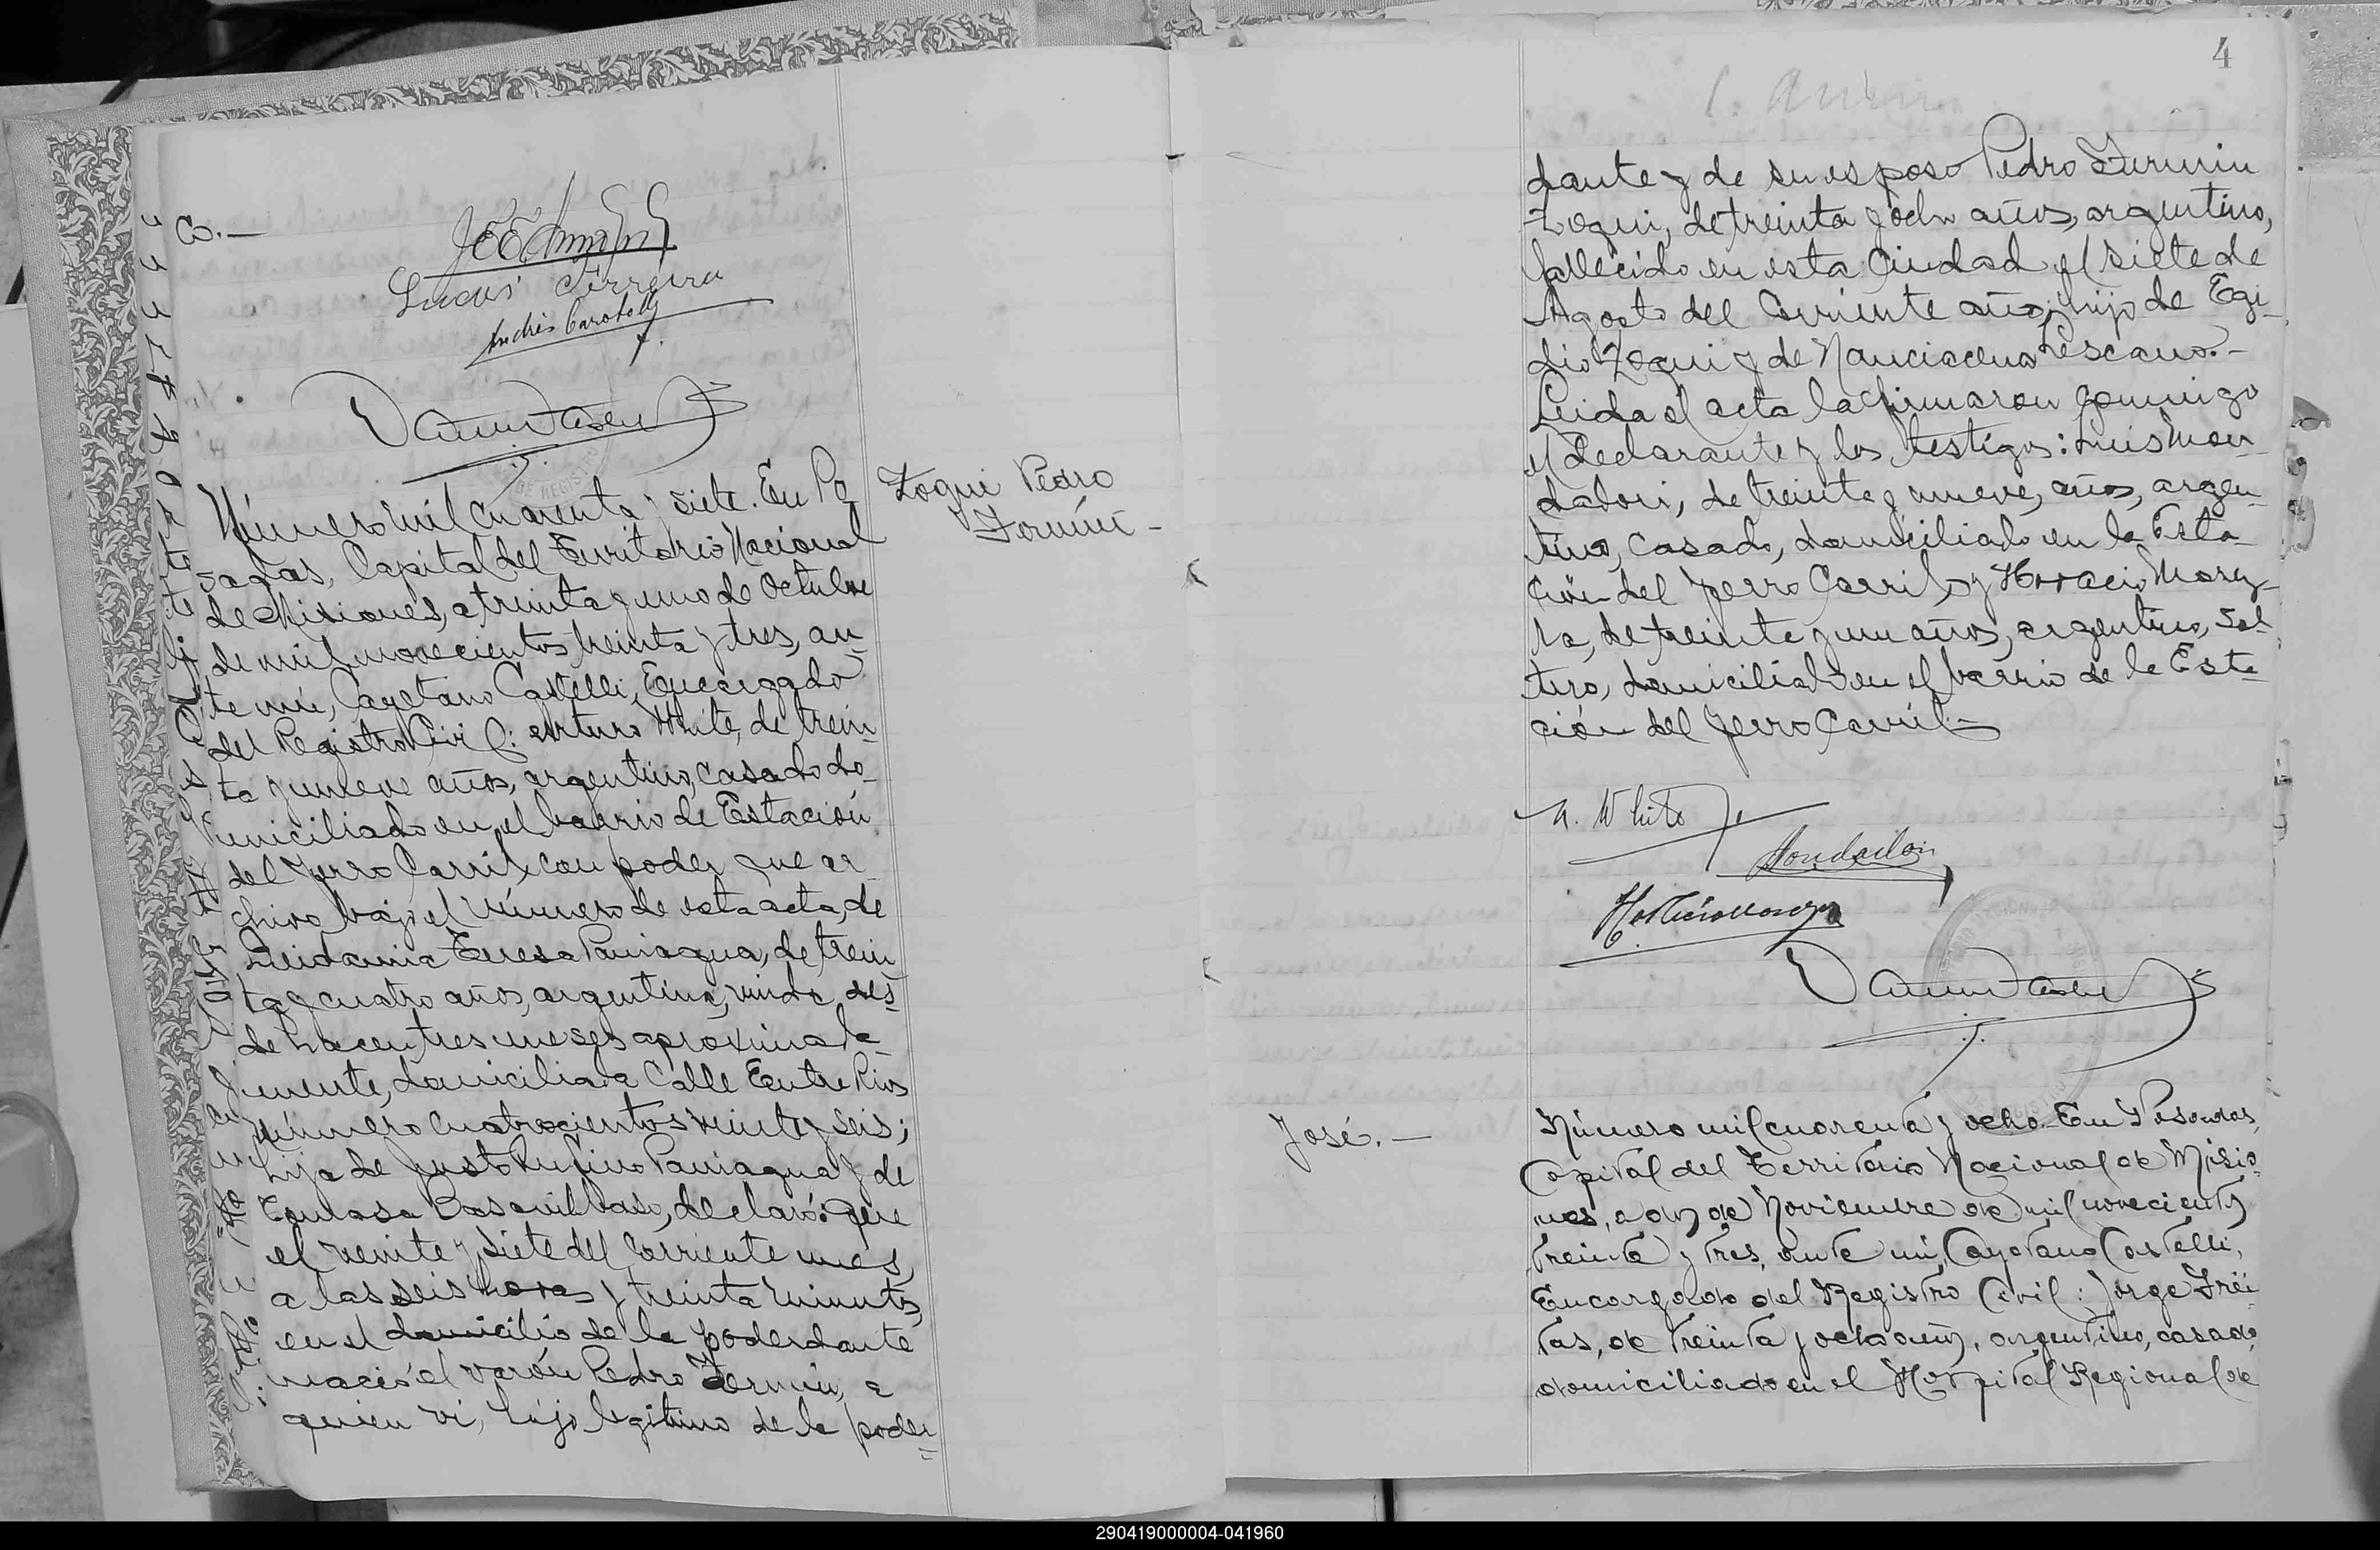 Co.—
Lucas Ferreyra
Andrés Carotolly
Número mil cuarenta y siete. En Po
sadas, Capital del Territorio Nacional
de Misiones, a treinta y uno de Octubre
de mil novecientos treinta y tres, an-
te mí, Cayetano Castelli, Encargado
del Registro Civil: Arturo White, de trein-
ta y nueve años, argentino, casado do-
miciliado en el barrio de Estación
del Ferro Carril, con poder que ar-
chivo bajo el número de esta acta, de
Teresa Paniagua, de trein-
ta y cuatro años, argentina, viuda des-
de hacen tres meses aproximada-
mente, domiciliada Calle Entre Rios
número cuatrocientos veinte y seis;
hija de Justo Rufino Paniagua y de
Tomasa Basavilbaso, declaró: Que
el veinte y siete del corriente mes,
a las seis horas y treinta minutos,
en el domicilio de la poderdante
nació el varón Pedro Fermín, a
quien vi, hijo legítimo de la poder-
Zoqui Pedro
Fermín -
4
dante y de su esposo Pedro Fermin
Zoqui, de treinta y ocho años, argentino,
fallecido en esta Ciudad el siete de
Agosto del corriente año; hijo de Egi-
dio Zoqui y de Lescano.-
Leida el acta la firmaron conmigo
el declarante y los testigos: Luis Mon-
dabori, de treinta y nueve, años, argen-
tino, casado, domiciliado en la Esta-
ción del Ferro Carril; y Horacio
de treinta y un años, argentino, sol-
tero, domiciliado en el barrio de la Esta
ción del Ferro Carril.-
A. White
José.—
Número mil cuarenta y ocho. En Posadas,
Capital del Territorio Nacional de Misio-
nes, a dos de Noviembre de mil novecientos
treinta y tres, ante mí, Cayetano Castelli,
Encargado del Registro Civil: Jorge Frei-
tas, de treinta y ocho años, argentino, casado,
domiciliado en el Hospital Regional de
290419000004-041960